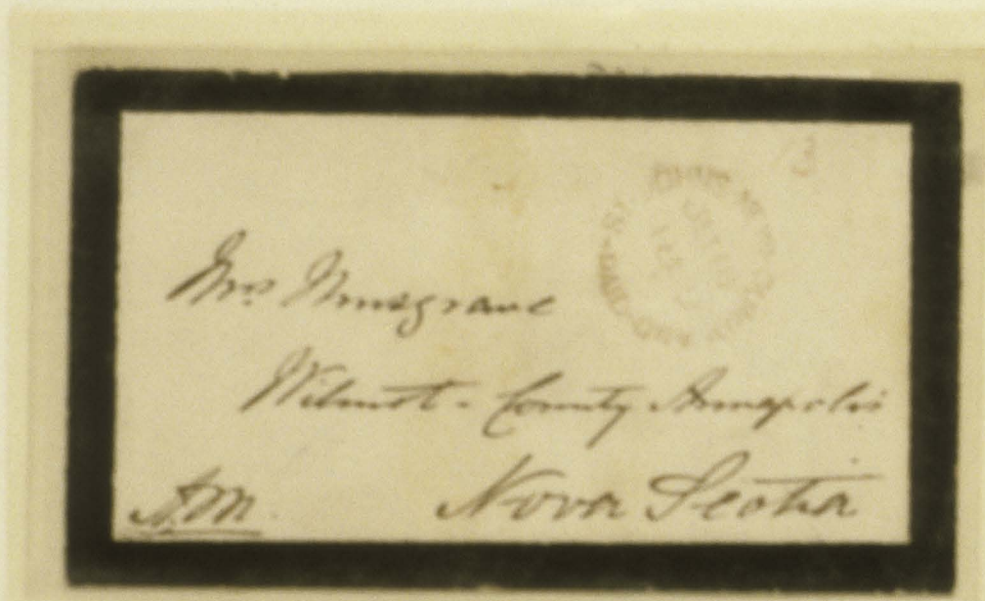 Mrs Musgrave
Wilmot - County Annapolis
Nova Scotia
A.M.
3